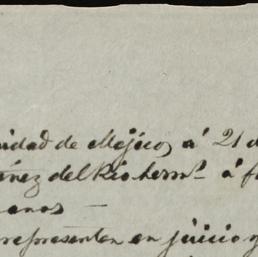 idad de Mejico, á 21 d
ñez del Rio herm.º á f
anos —
representen en juicio y